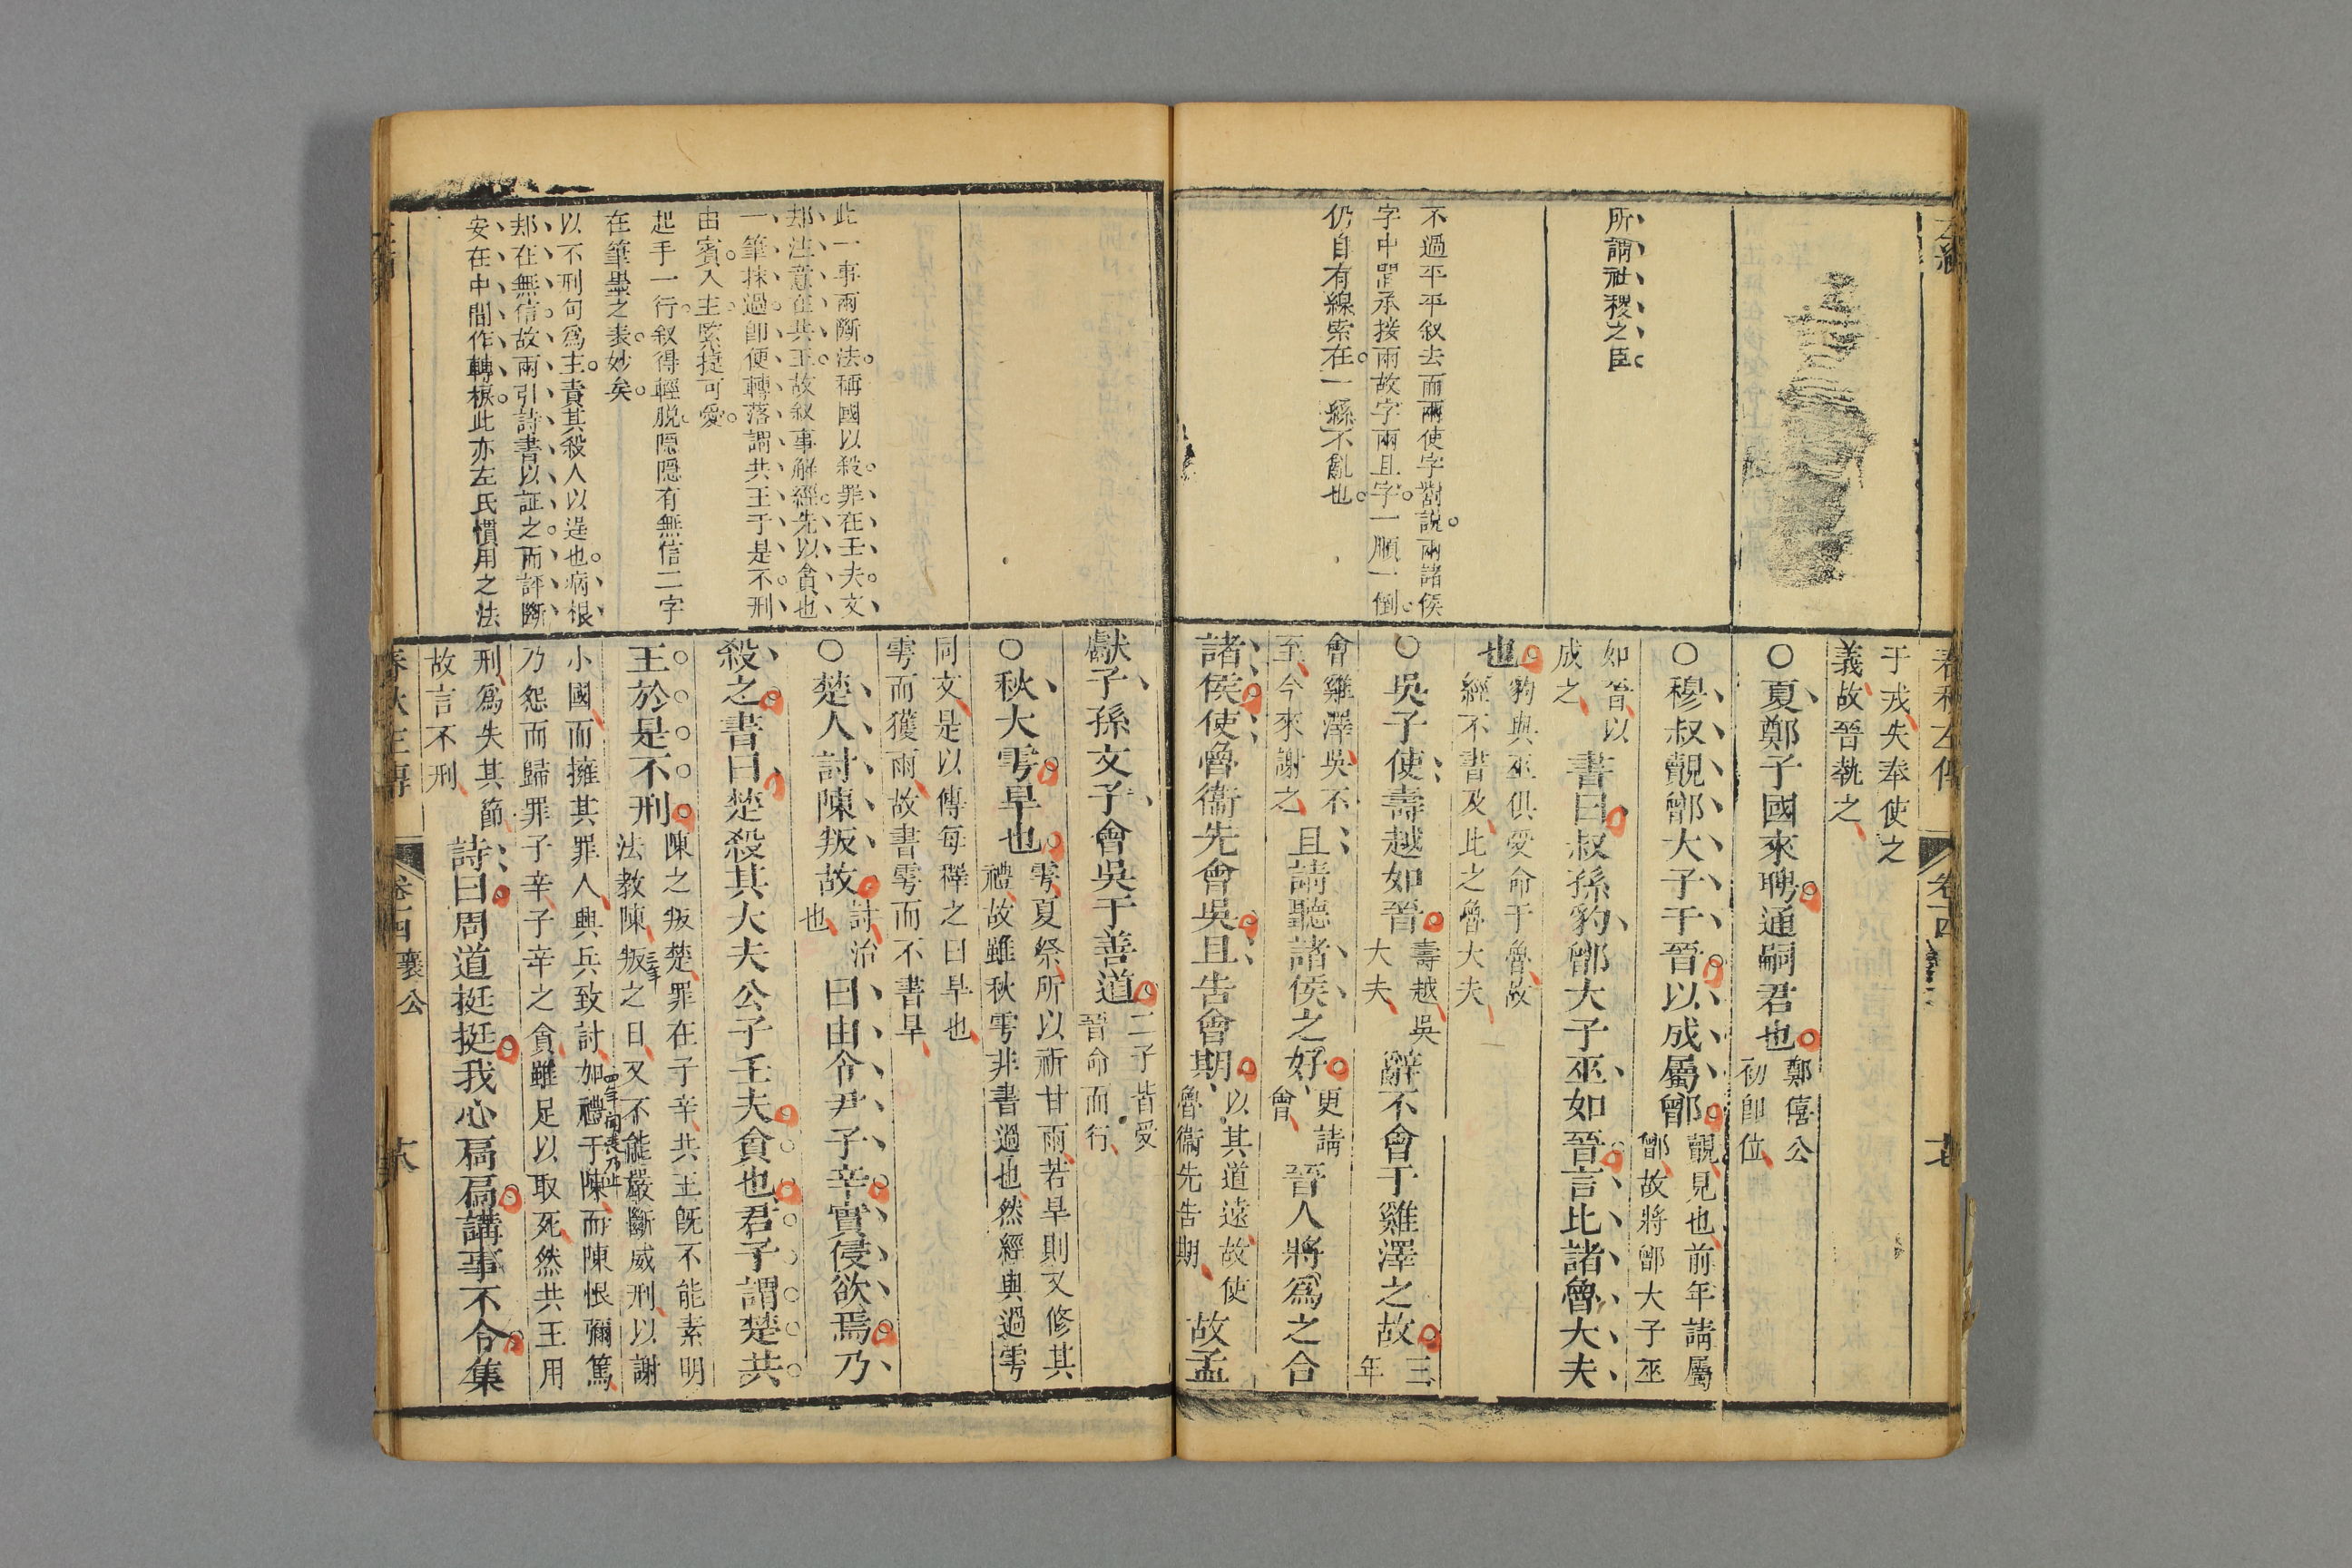 所謂社稷之臣
不過平平叙去而兩使字對說兩諸侯
字中間承接兩故字兩且字一順一倒
仍自有線索在一絲不亂也
春秋左傳
卷十四
于戎失奉使之
義故晉執之
○夏鄭子國來聘通嗣君也
鄭僖公
初卽位
○穆叔覿鄫大子于晉以成屬鄫
覿見也前年請屬
鄫故將鄫大子巫
如晉以
成之
書曰叔孫豹鄫大子巫如晉言比諸魯大夫
也
豹與巫俱受命于魯故
經不書及比之魯大夫
○吳子使壽越如晉
壽越吳
大夫
辭不會于雞澤之故
三
年
會雞澤吳不
至今來謝之
且請聽諸侯之好
更請
會
晉人將爲之合
諸侯使魯衞先會吳且告會期
以其道遠故使
魯衞先告期
故孟
此一事兩斷法稱國以殺罪在壬夫文
却注意在共王故叙事解經先以貪也
一筆抹過卽便轉落謂共王于是不刑
由賓入主緊捷可愛
起手一行叙得輕脫隱隱有無信二字
在筆墨之表妙矣
以不刑句爲主責其殺人以逞也病根
却在無信故兩引詩書以証之而評斷
安在中間作轉棙此亦左氏慣用之法
獻子孫文子會吳于善道
二子皆受
晉命而行
○秋大雩旱也
雩夏祭所以祈甘雨若旱則又修其
禮故雖秋雩非書過也然經與過雩
同文是以傳每釋之曰旱也
雩而獲雨故書雩而不書旱
○楚人討陳叛故
討治
也
曰由令尹子辛實侵欲焉乃
殺之書曰楚殺其大夫公子壬夫貪也君子謂楚共
王於是不刑
陳之叛楚罪在子辛共王旣不能素明
法教陳叛之日又不能嚴斷威刑以謝
小國而擁其罪人興兵致討加禮于陳而陳恨彌篤
乃怨而歸罪子辛子辛之貪雖足以取死然共王用
刑爲失其節
故言不刑
詩曰周道挺挺我心扃扃講事不令集
春秋左傳
卷十四
襄公